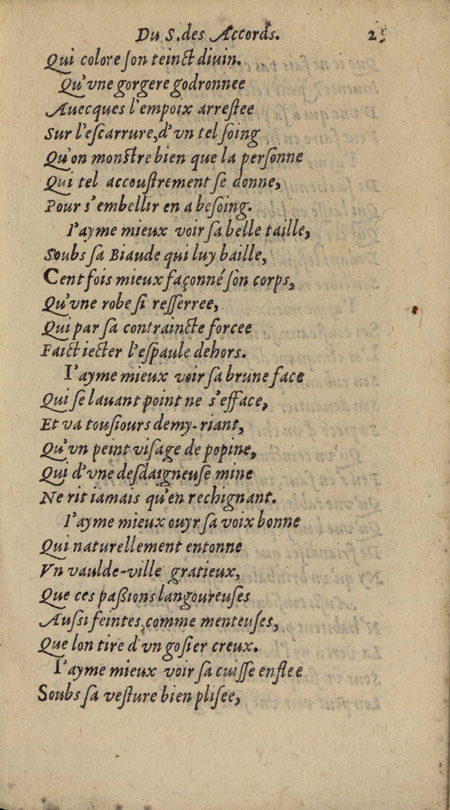 Du S. des Accords. 25
Qui colore ſon teinct diuin.
Qu'vne gorgere godronnee
Auecques l'empoix arreſtee
Sur l'eſcarrure, d'vn tel ſoing
Qu'on monſtre bien que la perſonne
Qui tel accouſtrement ſe donne,
Pour s'embellir en a beſoing.
I'ayme mieux voir ſa belle taille,
Soubs ſa Biaude qui luy baille,
Cent fois mieux façonné ſon corps,
Qu'vne robe ſi reſſerree,
Qui par ſa contraincte forcee
Faict iecter l'eſpaule dehors.
I'ayme mieux voir ſa brune face
Qui ſe lauant point ne s'efface,
Et va touſiours demy-riant,
Qu'vn peint viſage de popine,
Qui d'vne deſdaigneuſe mine
Ne rit iamais qu'en rechignant.
I'ayme mieux ouyr ſa voix bonne
Qui naturellement entonne
Vn vaulde-ville gratieux,
Que ces paßions langoureuſes
Auſſi feintes, comme menteuſes,
Que lon tire d'vn goſier creux.
I'ayme mieux voir ſa cuiſſe enflee
Soubs ſa veſture bien pliſee,